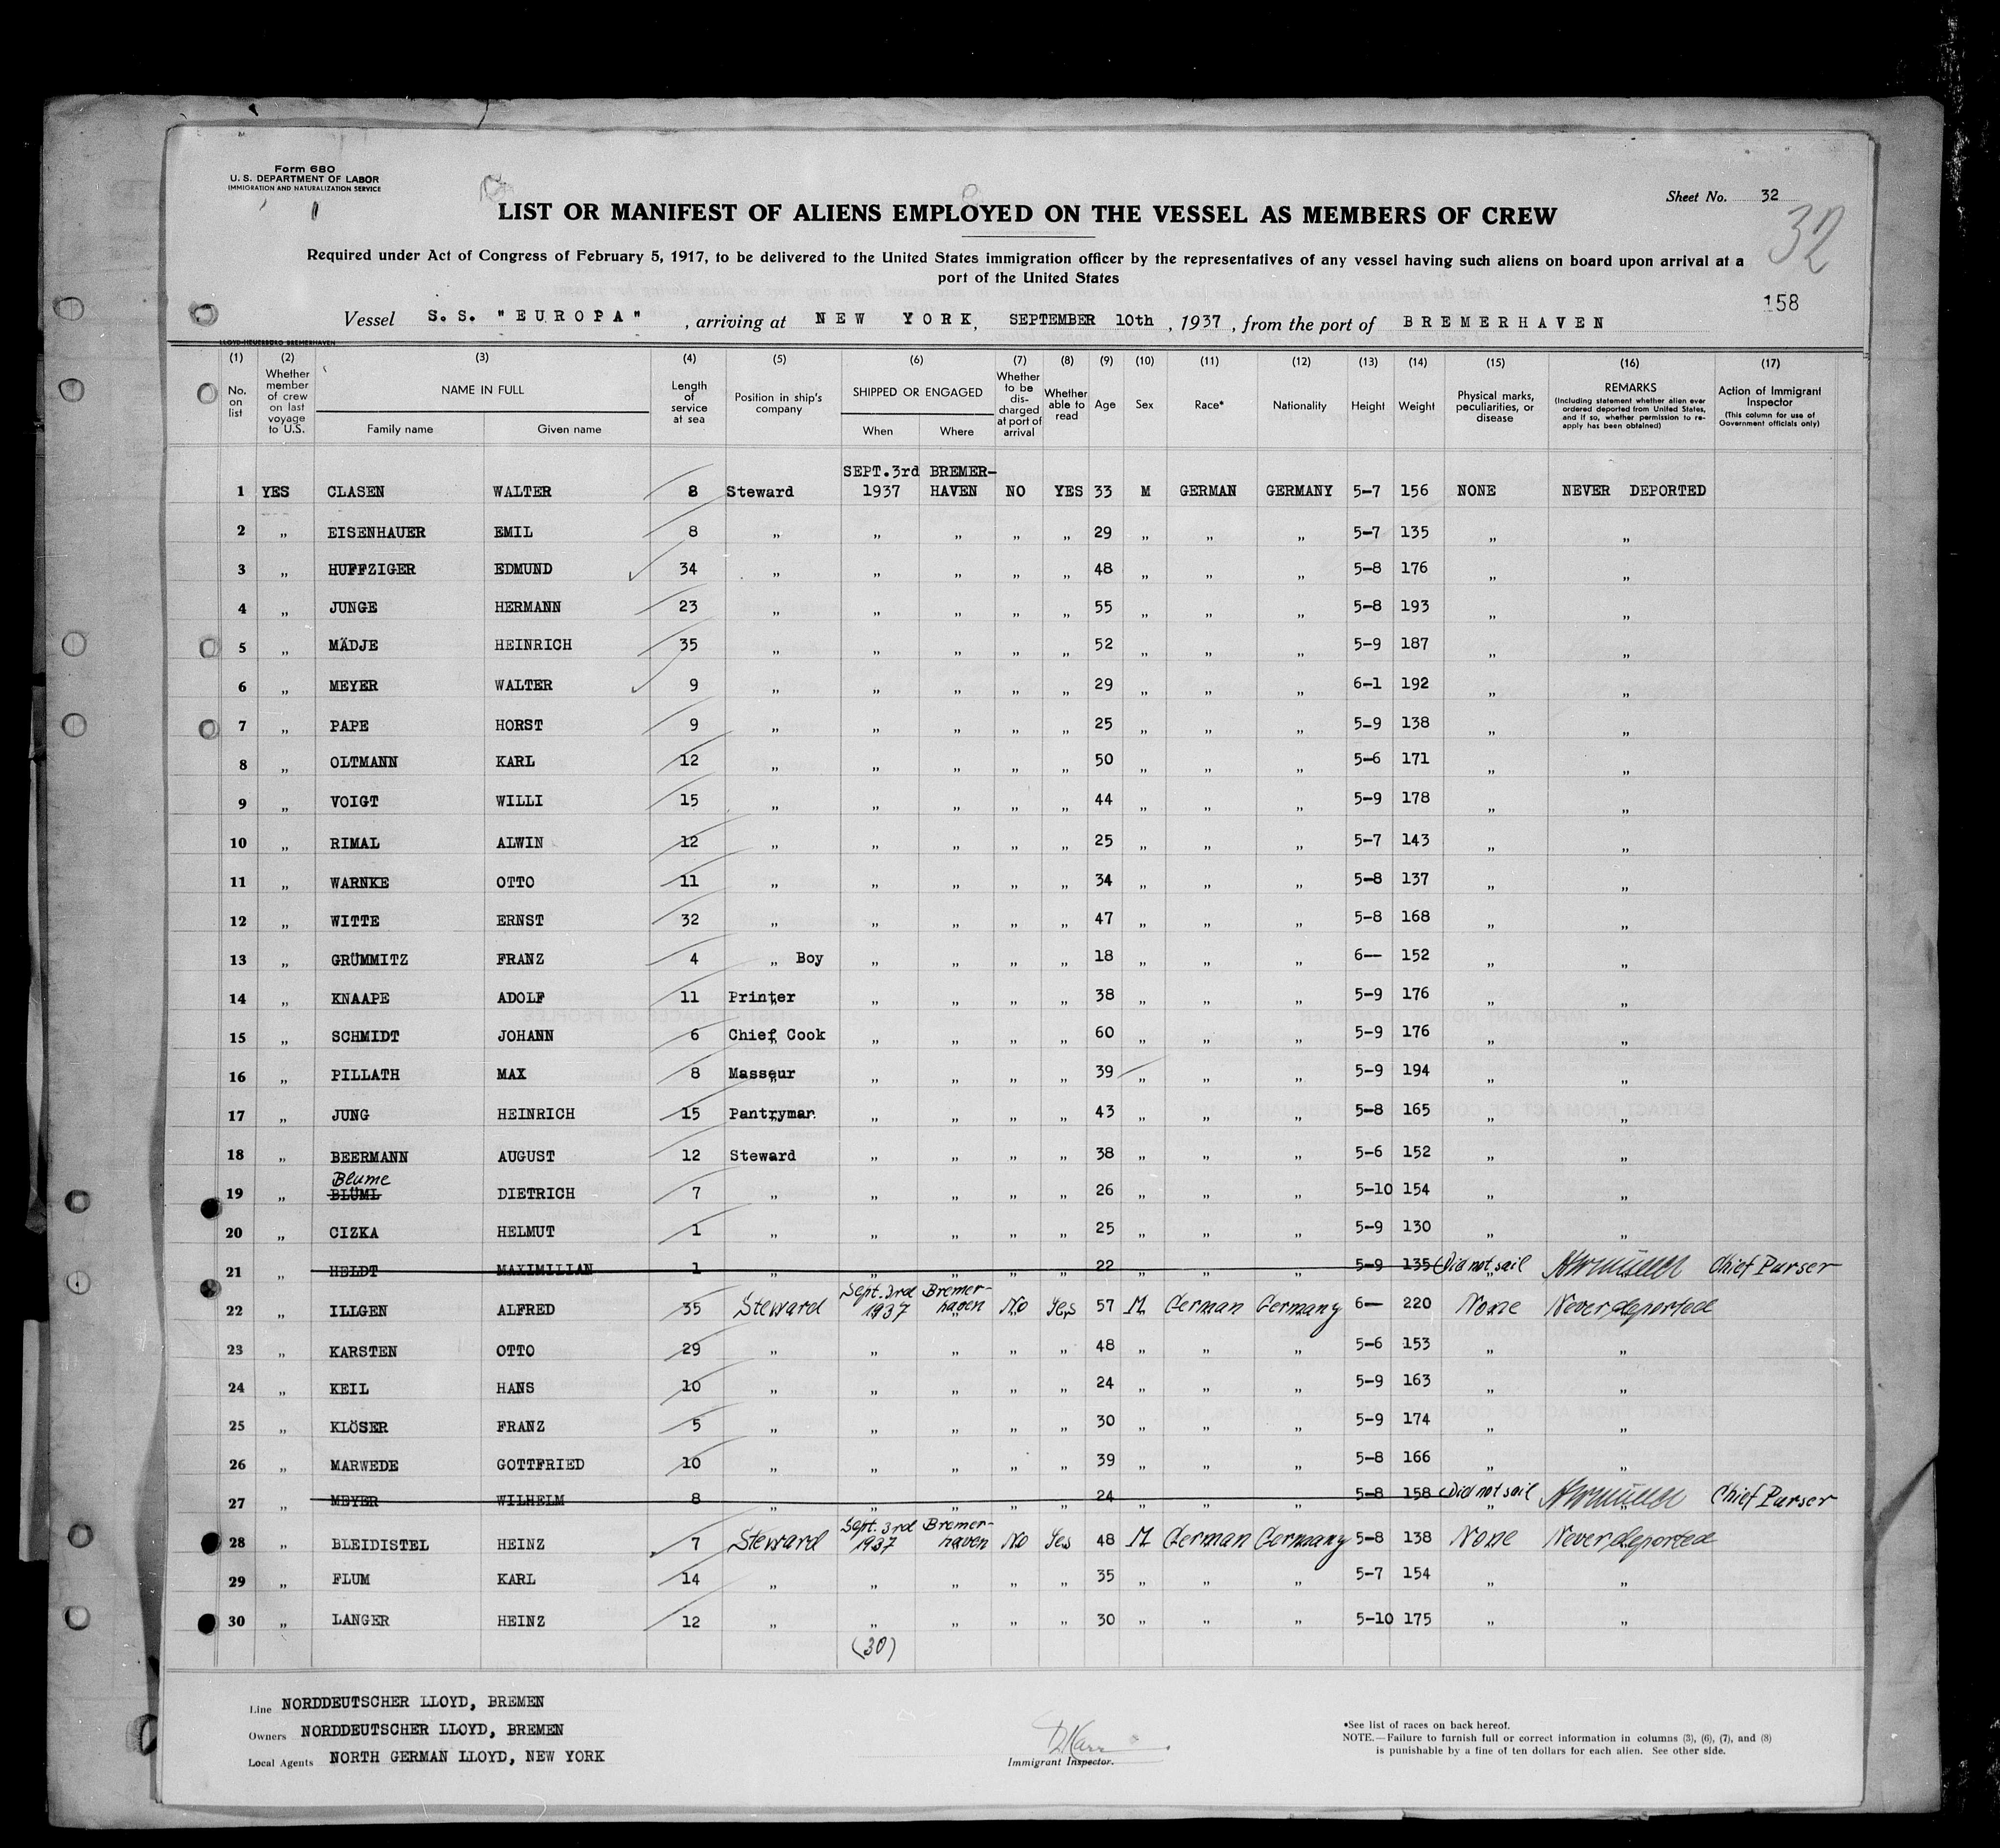 Form 680
U. S. DEPARTMENT OF LABOR
IMMIGRATION AND NATURALIZATION SERVICE
Sheet No. 32
32
LIST OR MANIFEST OF ALIENS EMPLOYED ON THE VESSEL AS MEMBERS OF CREW
Required under Act of Congress of February 5, 1917, to be delivered to the United States immigration officer by the representatives of any vessel having such aliens on board upon arrival at a
port of the United States
158
Vessel S.S. "EUROPA" , arriving at NEW YORK, SEPTEMBER 10th , 1937 , from the port of BREMERHAVEN
LLOYD-HEUERBÜRO BREMERHAVEN
(1) (2) (3) (4) (5) (6) (7) (8) (9) (10) (11) (12) (13) (14) (15) (16) (17)
No. on list Whether member of crew on last voyage to U.S. NAME IN FULL Family name Given name Length of service at sea Position in ship's company SHIPPED OR ENGAGED When Where Whether to be discharged at port of arrival Whether able to read Age Sex Race* Nationality Height Weight Physical marks, peculiarities, or disease REMARKS (Including statement whether alien ever ordered deported from United States, and if so, whether permission to reapply has been obtained) Action of Immigrant Inspector (This column for use of Government officials only)
SEPT.3rd BREMER-
1 YES CLASEN WALTER 8 Steward 1937 HAVEN NO YES 33 M GERMAN GERMANY 5-7 156 NONE NEVER DEPORTED
2 " EISENHAUER EMIL 8 " " " " " 29 " " " 5-7 135 " "
3 " HUFFZIGER EDMUND 34 " " " " " 48 " " " 5-8 176 " "
4 " JUNGE HERMANN 23 " " " " " 55 " " " 5-8 193 " "
5 " MÄDJE HEINRICH 35 " " " " " 52 " " " 5-9 187 " "
6 " MEYER WALTER 9 " " " " " 29 " " " 6-1 192 " "
7 " PAPE HORST 9 " " " " " 25 " " " 5-9 138 " "
8 " OLTMANN KARL 12 " " " " " 50 " " " 5-6 171 " "
9 " VOIGT WILLI 15 " " " " " 44 " " " 5-9 178 " "
10 " RIMAL ALWIN 12 " " " " " 25 " " " 5-7 143 " "
11 " WARNKE OTTO 11 " " " " " 34 " " " 5-8 137 " "
12 " WITTE ERNST 32 " " " " " 47 " " " 5-8 168 " "
13 " GRÜMMITZ FRANZ 4 " Boy " " " " 18 " " " 6— 152 " "
14 " KNAAPE ADOLF 11 Printer " " " " 38 " " " 5-9 176 " "
15 " SCHMIDT JOHANN 6 Chief Cook " " " " 60 " " " 5-9 176 " "
16 " PILLATH MAX 8 Masseur " " " " 39 " " " 5-9 194 " "
17 " JUNG HEINRICH 15 Pantryman " " " " 43 " " " 5-8 165 " "
18 " BEERMANN AUGUST 12 Steward " " " " 38 " " " 5-6 152 " "
Blume
19 " BLÜML DIETRICH 7 " " " " " 26 " " " 5-10 154 " "
20 " CIZKA HELMUT 1 " " " " " 25 " " " 5-9 130 " "
21 " HELDT MAXIMILIAN 1 " " " " " 22 " " " 5-9 135 Did not sail Chief Purser
22 " ILLGEN ALFRED 35 Steward Sept. 3rd 1937 Bremer-haven No Yes 57 M German Germany 6— 220 None Never deported
23 " KARSTEN OTTO 29 " " " " " 48 " " " 5-6 153 " "
24 " KEIL HANS 10 " " " " " 24 " " " 5-9 163 " "
25 " KLÖSER FRANZ 5 " " " " " 30 " " " 5-9 174 " "
26 " MARWEDE GOTTFRIED 10 " " " " " 39 " " " 5-8 166 " "
27 " MEYER WILHELM 8 " " " " " 24 " " " 5-8 158 Did not sail Chief Purser
28 " BLEIDISTEL HEINZ 7 Steward Sept. 3rd 1937 Bremer-haven No Yes 48 M German Germany 5-8 138 None Never deported
29 " FLUM KARL 14 " " " " " 35 " " " 5-7 154 " "
30 " LANGER HEINZ 12 " " " " " 30 " " " 5-10 175 " "
(30)
Line NORDDEUTSCHER LLOYD, BREMEN
Owners NORDDEUTSCHER LLOYD, BREMEN
Local Agents NORTH GERMAN LLOYD, NEW YORK
Immigrant Inspector.
*See list of races on back hereof.
NOTE.—Failure to furnish full or correct information in columns (3), (6), (7), and (8)
is punishable by a fine of ten dollars for each alien. See other side.